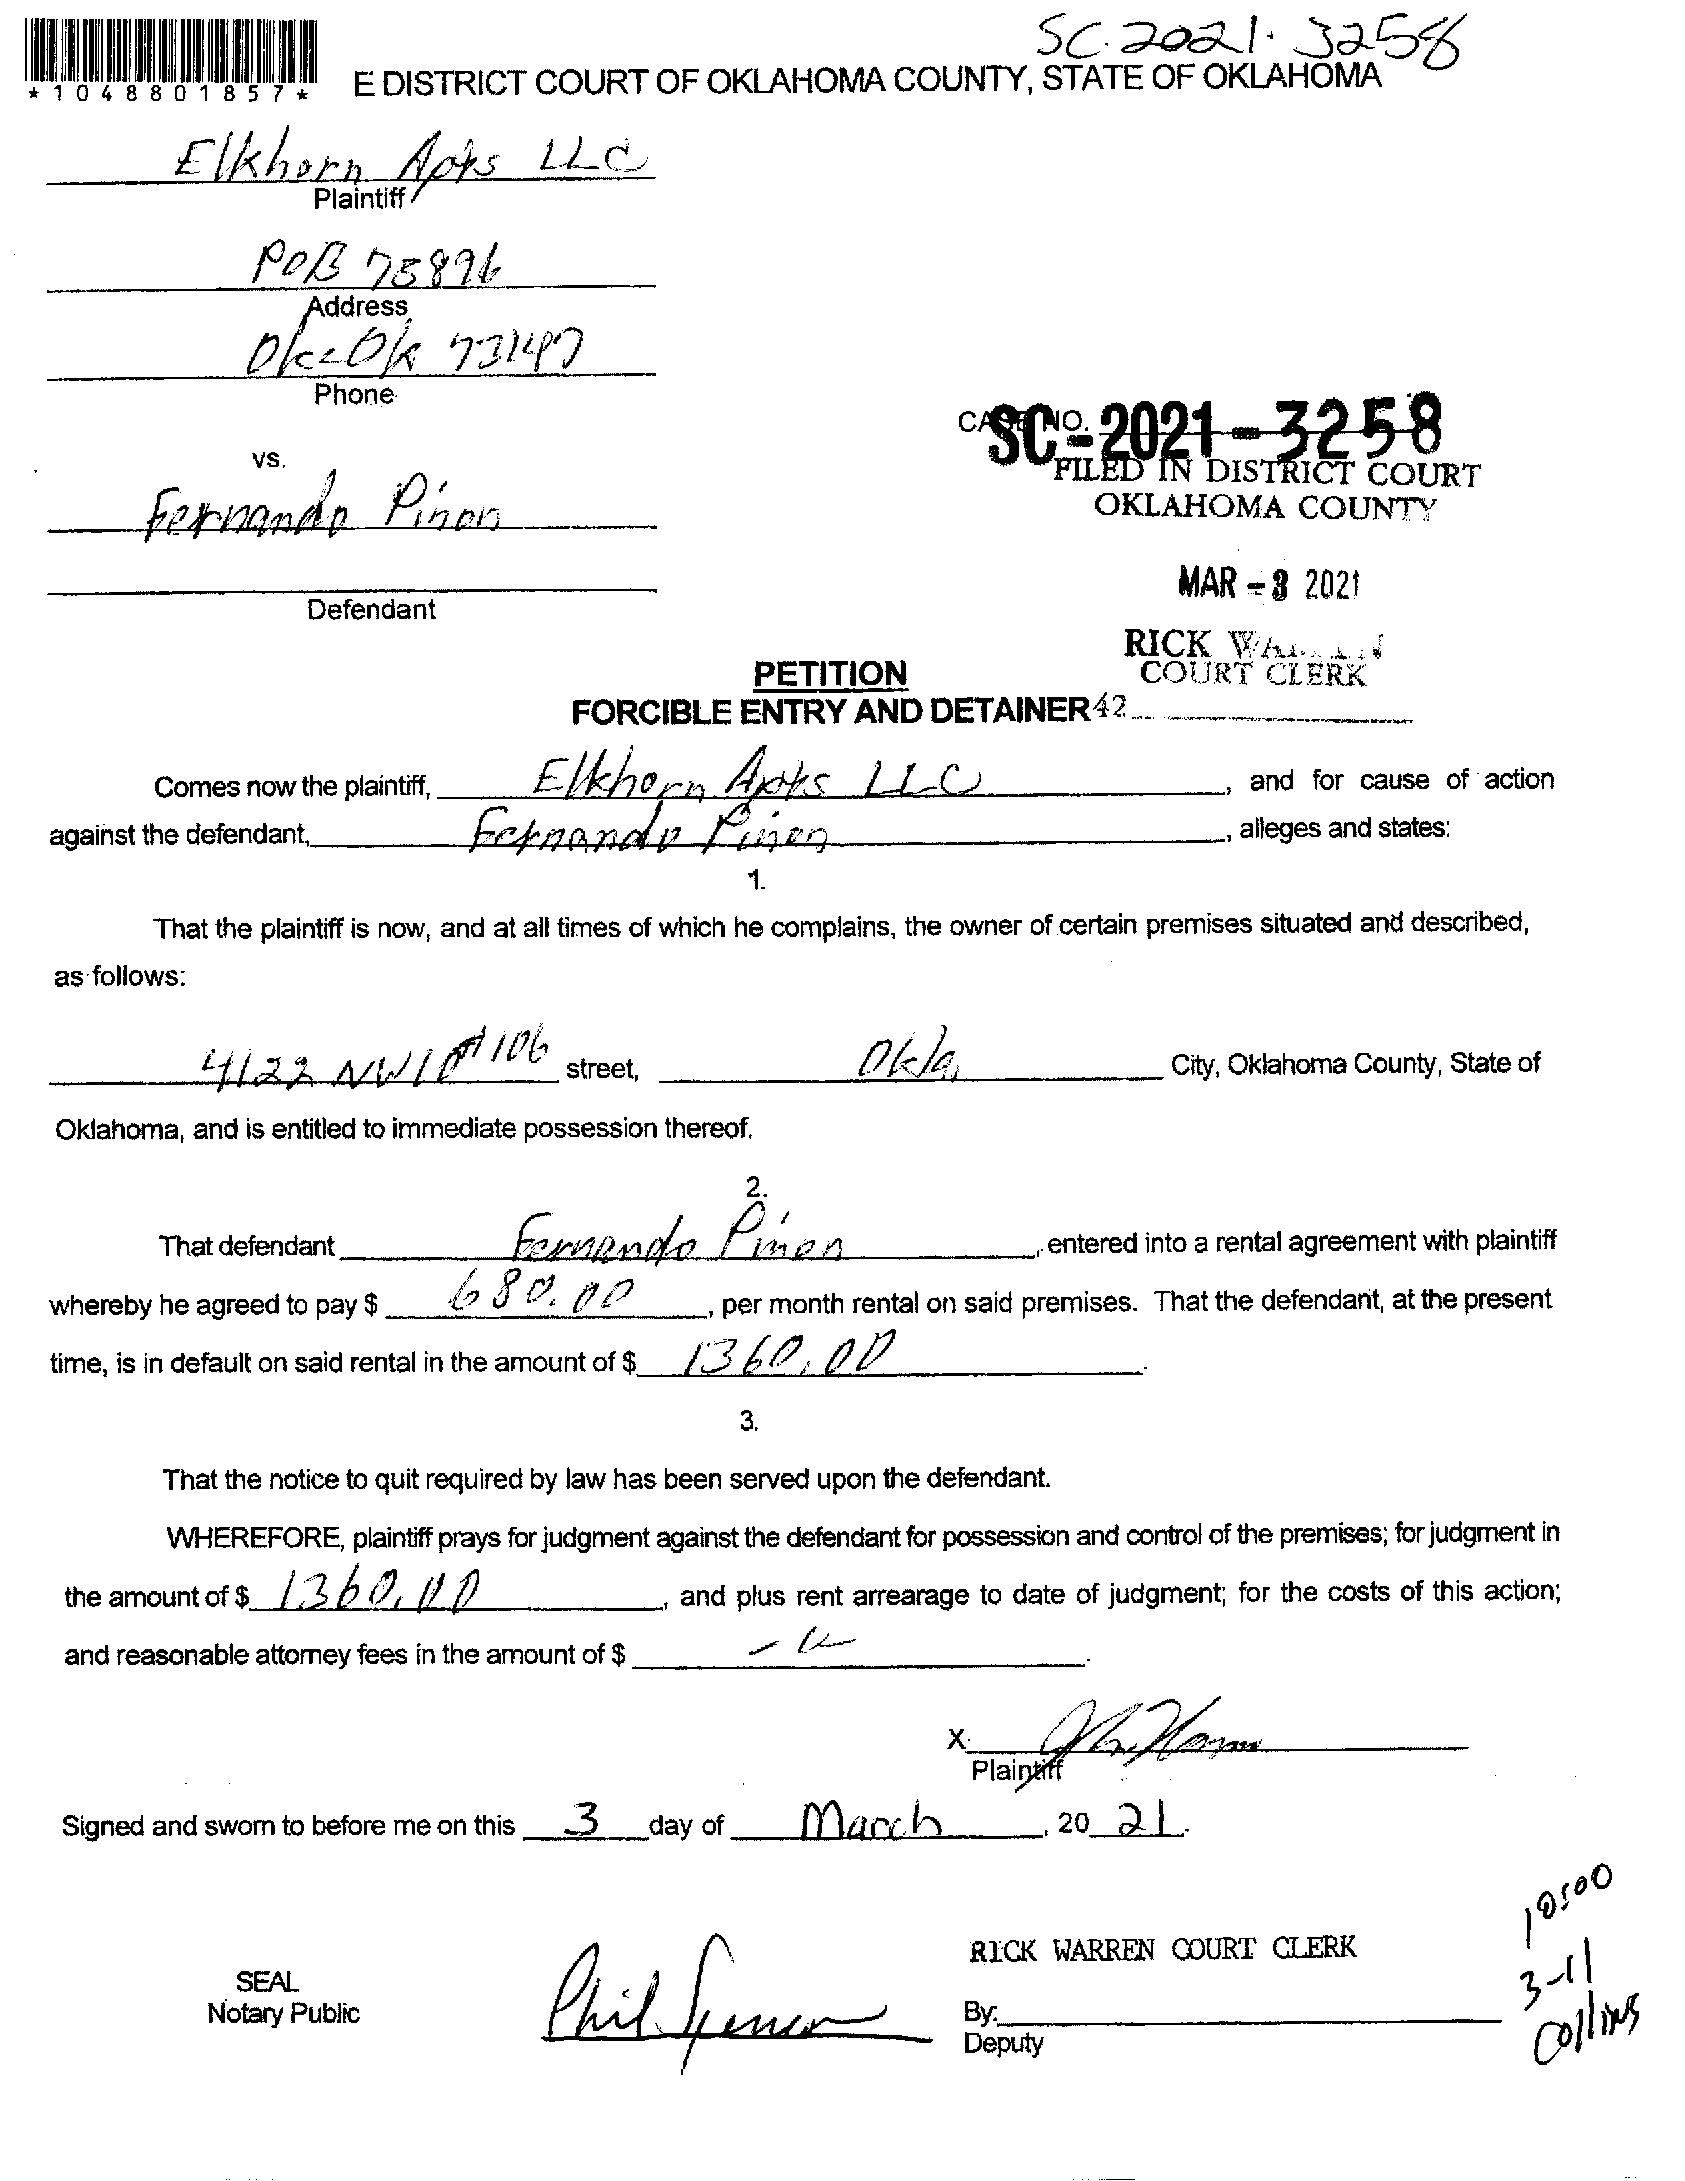 SC-2021-3258
*1048801857*
E DISTRICT COURT OF OKLAHOMA COUNTY, STATE OF OKLAHOMA
Elkhorn Apts LLC
Plaintiff
POB 75896
Address
Okc Ok 73147
Phone
CASE NO.
SC-2021-3258
vs.
FILED IN DISTRICT COURT
OKLAHOMA COUNTY
Fernando Pinon
MAR - 3 2021
Defendant
RICK
COURT CLERK
PETITION
FORCIBLE ENTRY AND DETAINER 42
Comes now the plaintiff, Elkhorn Apts LLC, and for cause of action
against the defendant, Fernando Pinon, alleges and states:
1.
That the plaintiff is now, and at all times of which he complains, the owner of certain premises situated and described,
as follows:
4122 NW 10 #106 street, Okla, City, Oklahoma County, State of
Oklahoma, and is entitled to immediate possession thereof.
2.
That defendant Fernando Pinon, entered into a rental agreement with plaintiff
whereby he agreed to pay $ 680.00, per month rental on said premises. That the defendant, at the present
time, is in default on said rental in the amount of $ 1360.00.
3.
That the notice to quit required by law has been served upon the defendant.
WHEREFORE, plaintiff prays for judgment against the defendant for possession and control of the premises; for judgment in
the amount of $ 1360.00, and plus rent arrearage to date of judgment; for the costs of this action;
and reasonable attorney fees in the amount of $
X
Plaintiff
Signed and sworn to before me on this 3 day of March, 20 21.
RICK WARREN COURT CLERK
SEAL
Notary Public
Phil
By:
Deputy
3-11
Collins